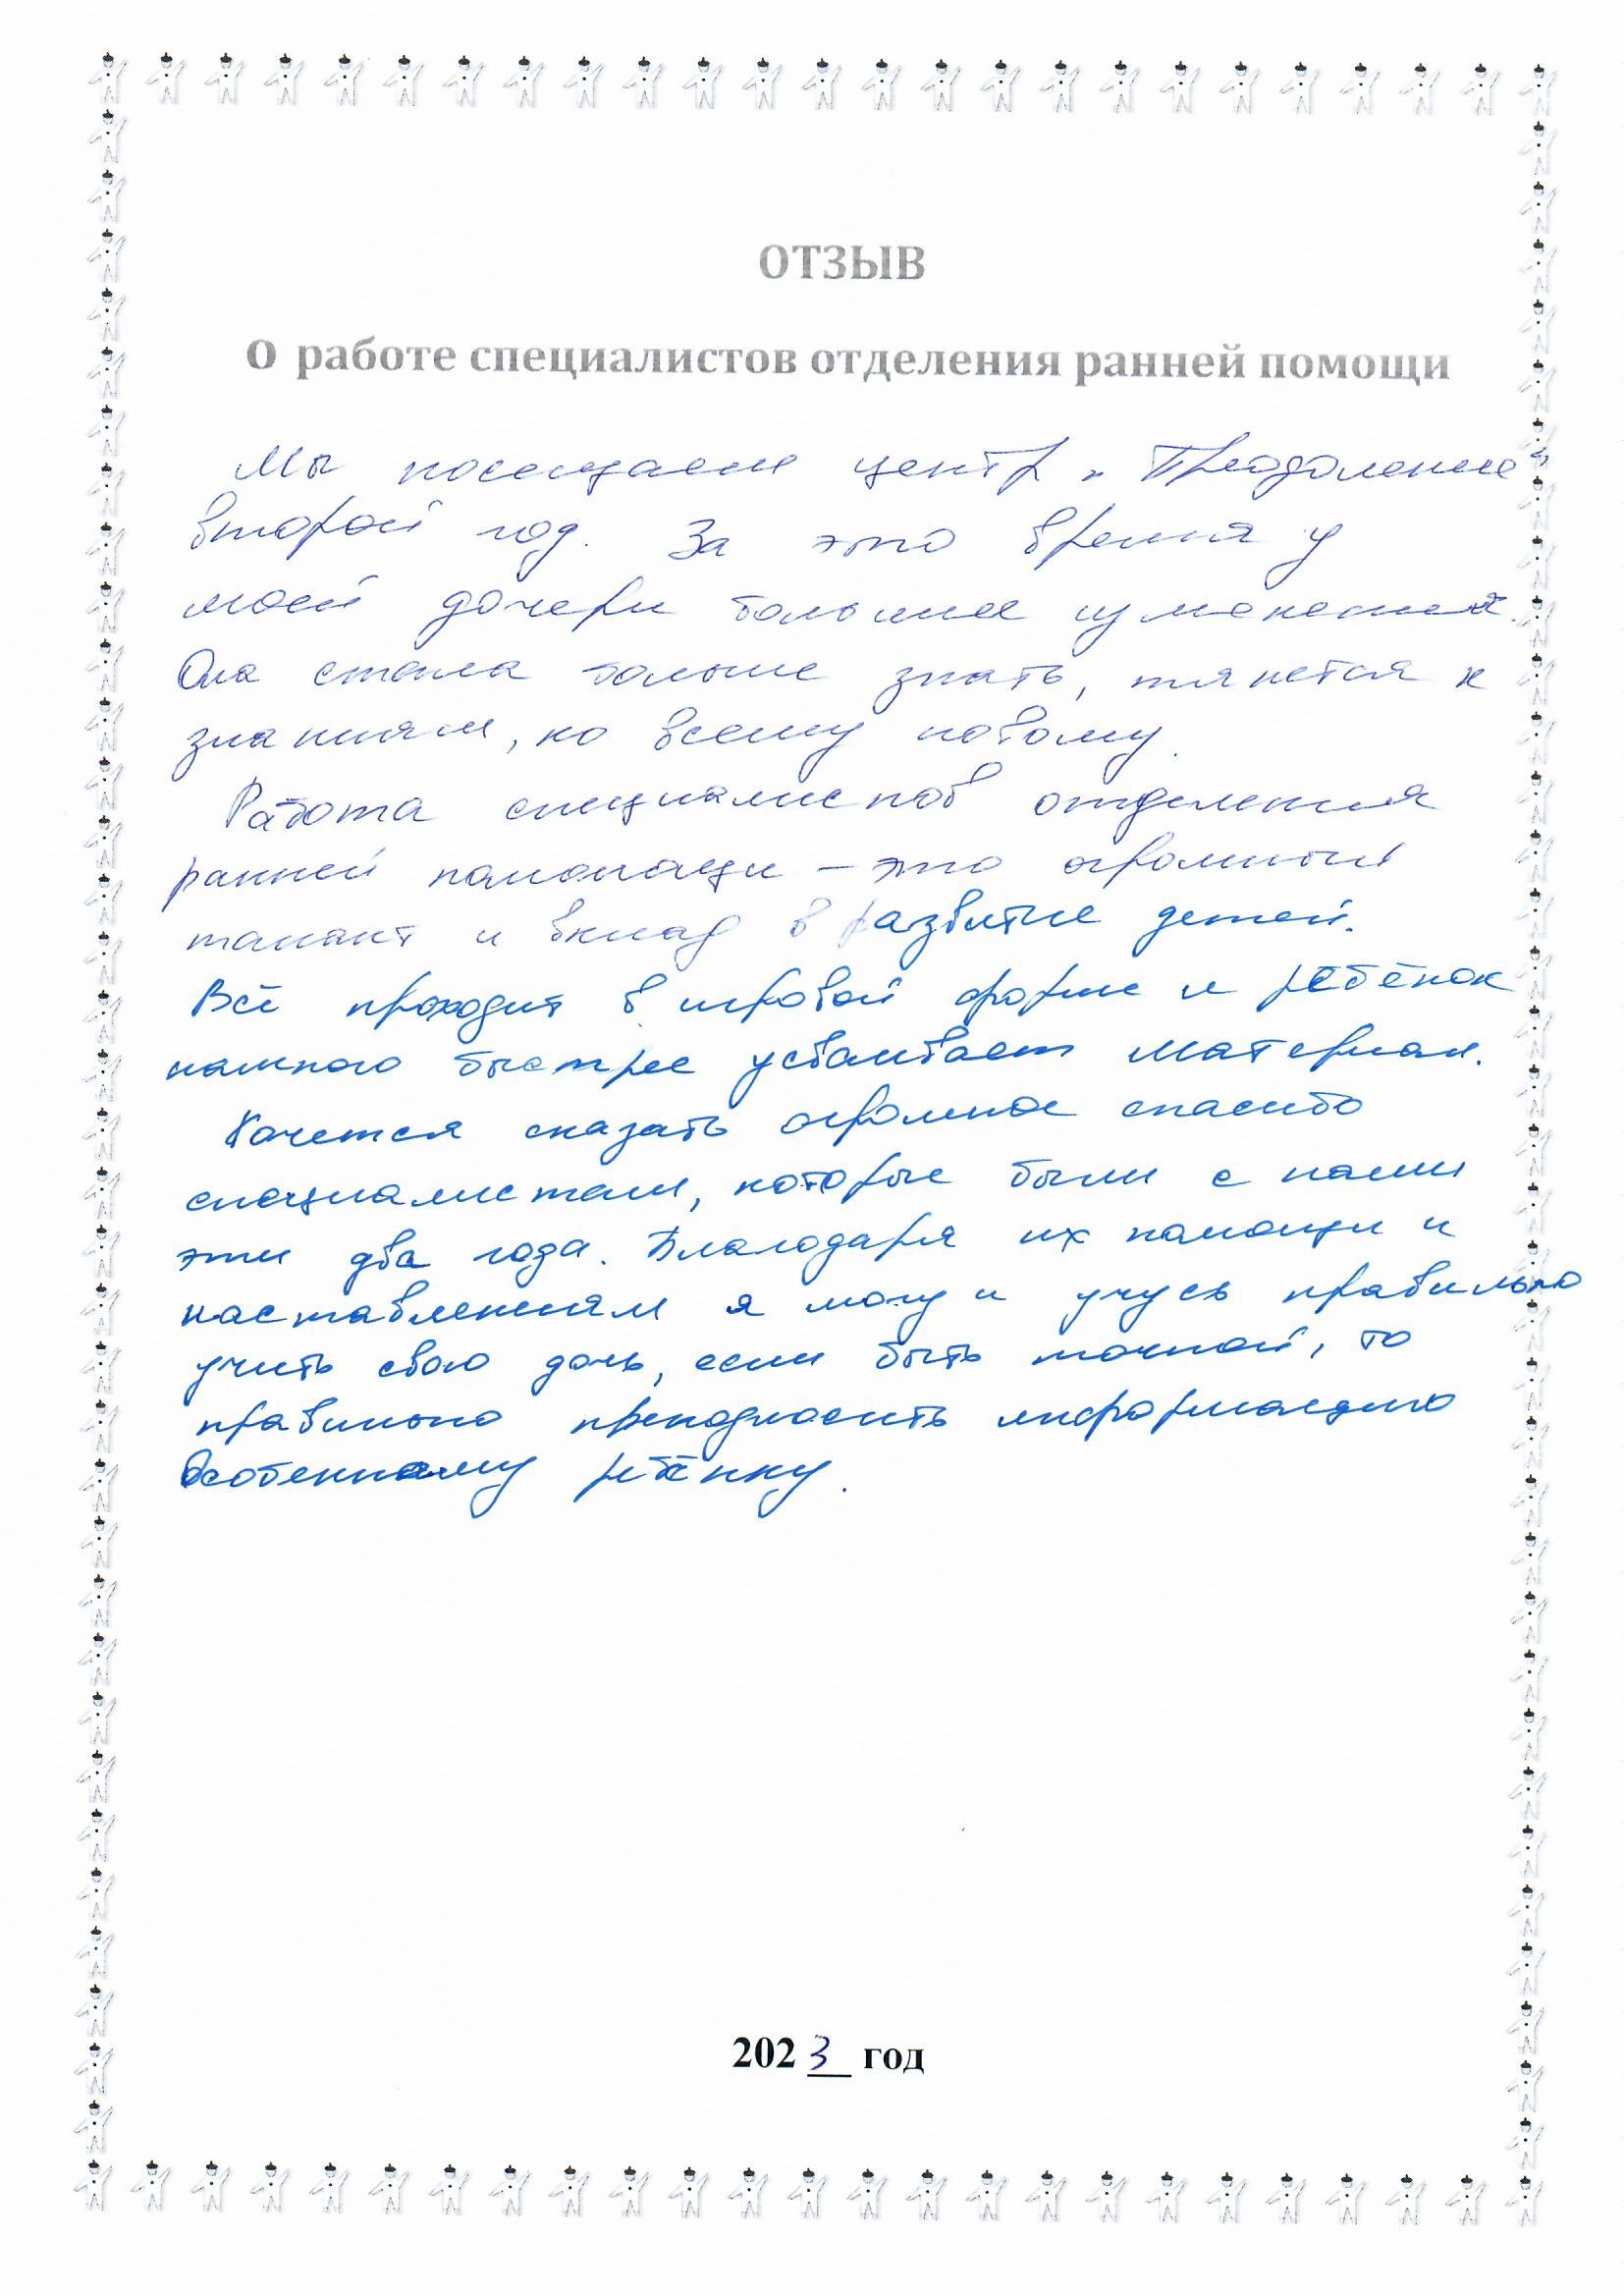 ОТЗЫВ
О работе специалистов отделения ранней помощи
Мы посещаем центр „Преодоление"
второй год. За это время у
моей дочери большие изменения.
Она стала больше знать, тянется к
знаниям, ко всему новому.
Работа специалистов отделения
ранней помощи – это огромный
талант и вклад в развитие детей.
Всё проходит в игровой форме и ребёнок
намного быстрее усваивает материал.
Хочется сказать огромное спасибо
специалистам, которые были с нами
эти два года. Благодаря их помощи и
наставлениям я могу и учусь правильно
учить свою дочь, если быть точной, то
правильно преподносить информацию
Особенному ребёнку.
2023 год